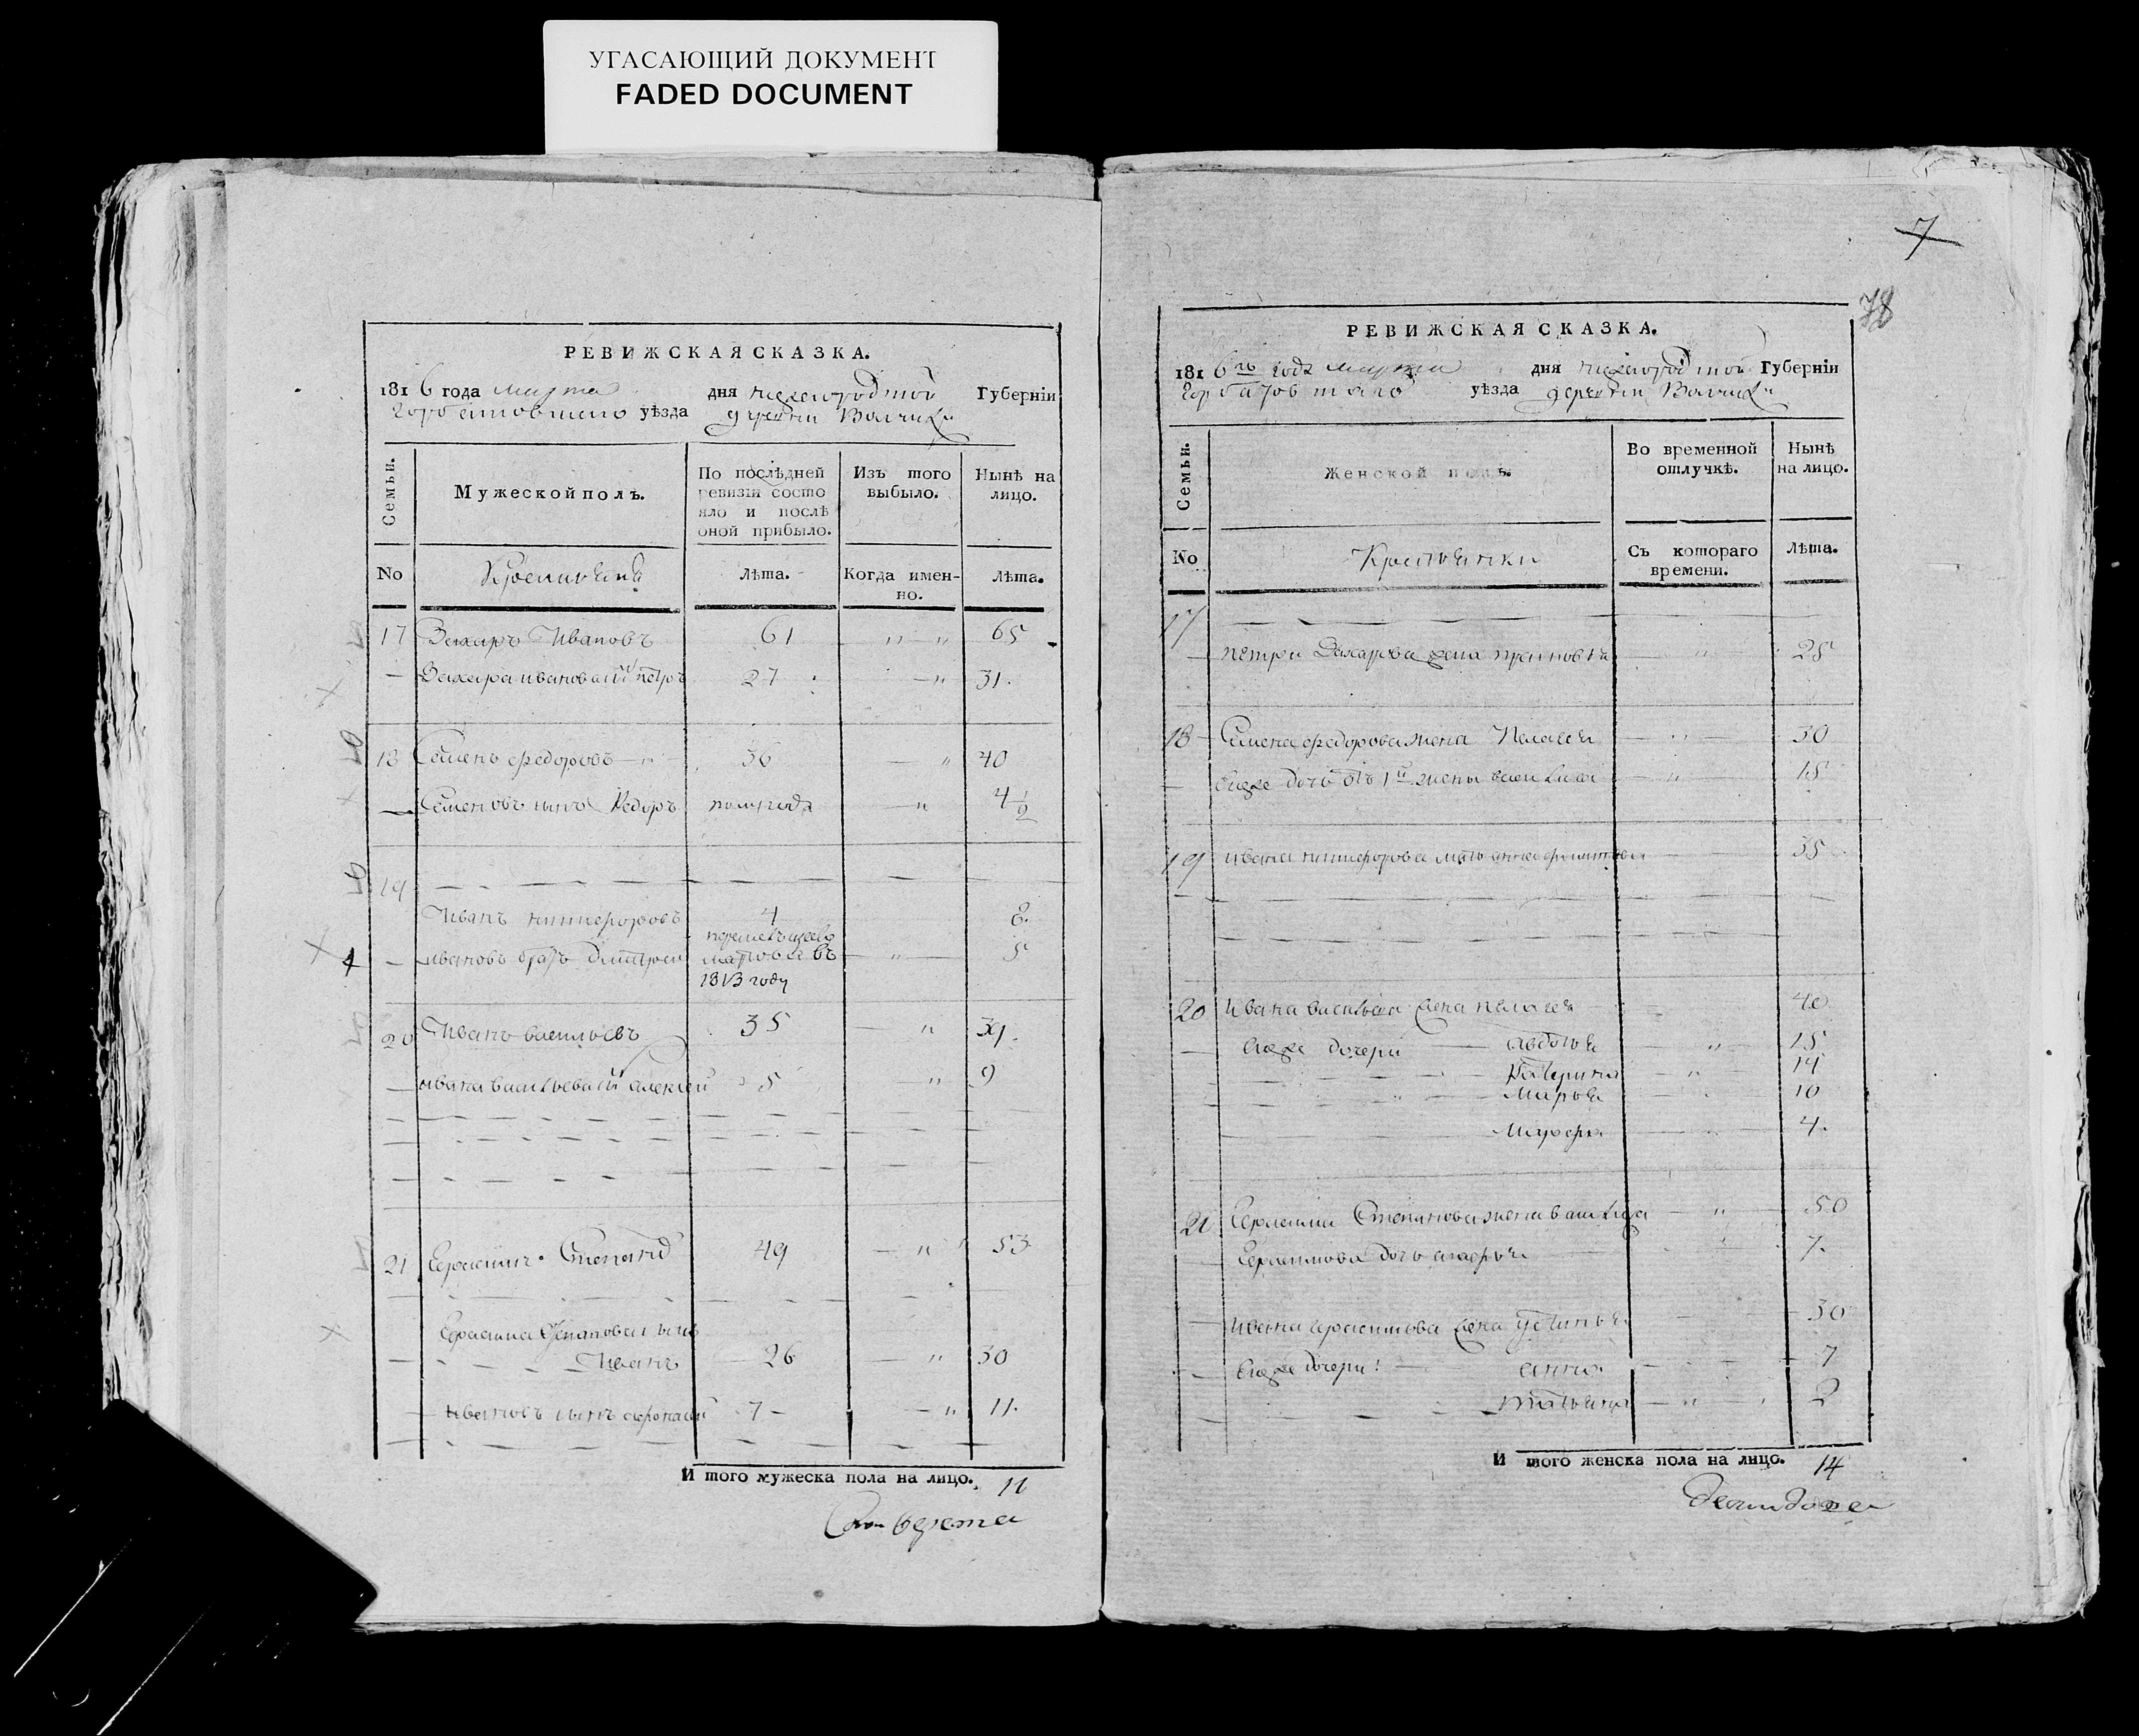 УГАСАЮЩИЙ ДОКУМЕНТ
FADED DOCUMENT
РЕВИЖСКАЯ СКАЗКА.
1816 года марта дня нижегородской Губернiи
горбатовскаго уѣзда деревни
Семьи.
Мужеской полъ.
По послѣдней ревизiи состояло и послѣ оной прибыло.
Изъ того выбыло.
Нынѣ на лицо.
No
Лѣта.
Когда именно.
Лѣта.
17 Захаръ Ивановъ 61 " " 65
— Захара иванова сынъ петръ 27 — " 31.
18 Семенъ федоровъ — " — 36 — " 40
— Семеновъ сынъ Федоръ полугода — " 4 1/2
19
Иванъ никифоровъ 4 8.
— ивановъ братъ дмитрей 5
въ
1813 году
20 Иванъ васильевъ 35 — " 39.
— ивана васильева сынъ алексей 5 " 9
21 Герасимъ Степановъ 49 — " 53
Герасима Степанова сынъ
— Иванъ 26 — " 30
— Ивановъ сынъ 7 — — " 11.
И того мужеска пола на лицо. 11
7
78
РЕВИЖСКАЯ СКАЗКА.
1816го года марта дня нижегородской Губернiи
горбатовскаго уѣзда деревни
Семьи.
Женской полъ.
Во временной отлучкѣ.
Нынѣ на лицо.
No
Крестьянки
Съ котораго времени.
Лѣта.
17
— петра Захарова жена " 28
18 Семена федорова жена Пелагея — " — 30
— Ево же дочь отъ 1й жены " 15
19 ивана никифорова мать анна 35
20 Ивана васильева жена пелагея 40
— Ево же дочери — авдотья — " 15
Катерина — " 14
Марья 10
Марфа 4.
21 Герасима Степанова жена василиса — " 50
— Герасимова дочь 7.
— Ивана герасимова жена устинья 30
— Ево же дочери: — анна 7
Татьяна — " 2
И того женска пола на лицо. 14